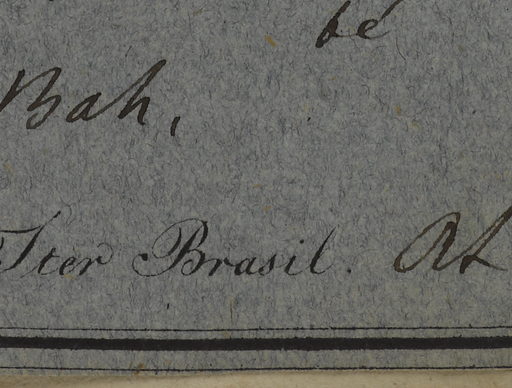 bé
Bah,
Iter Brasil. At